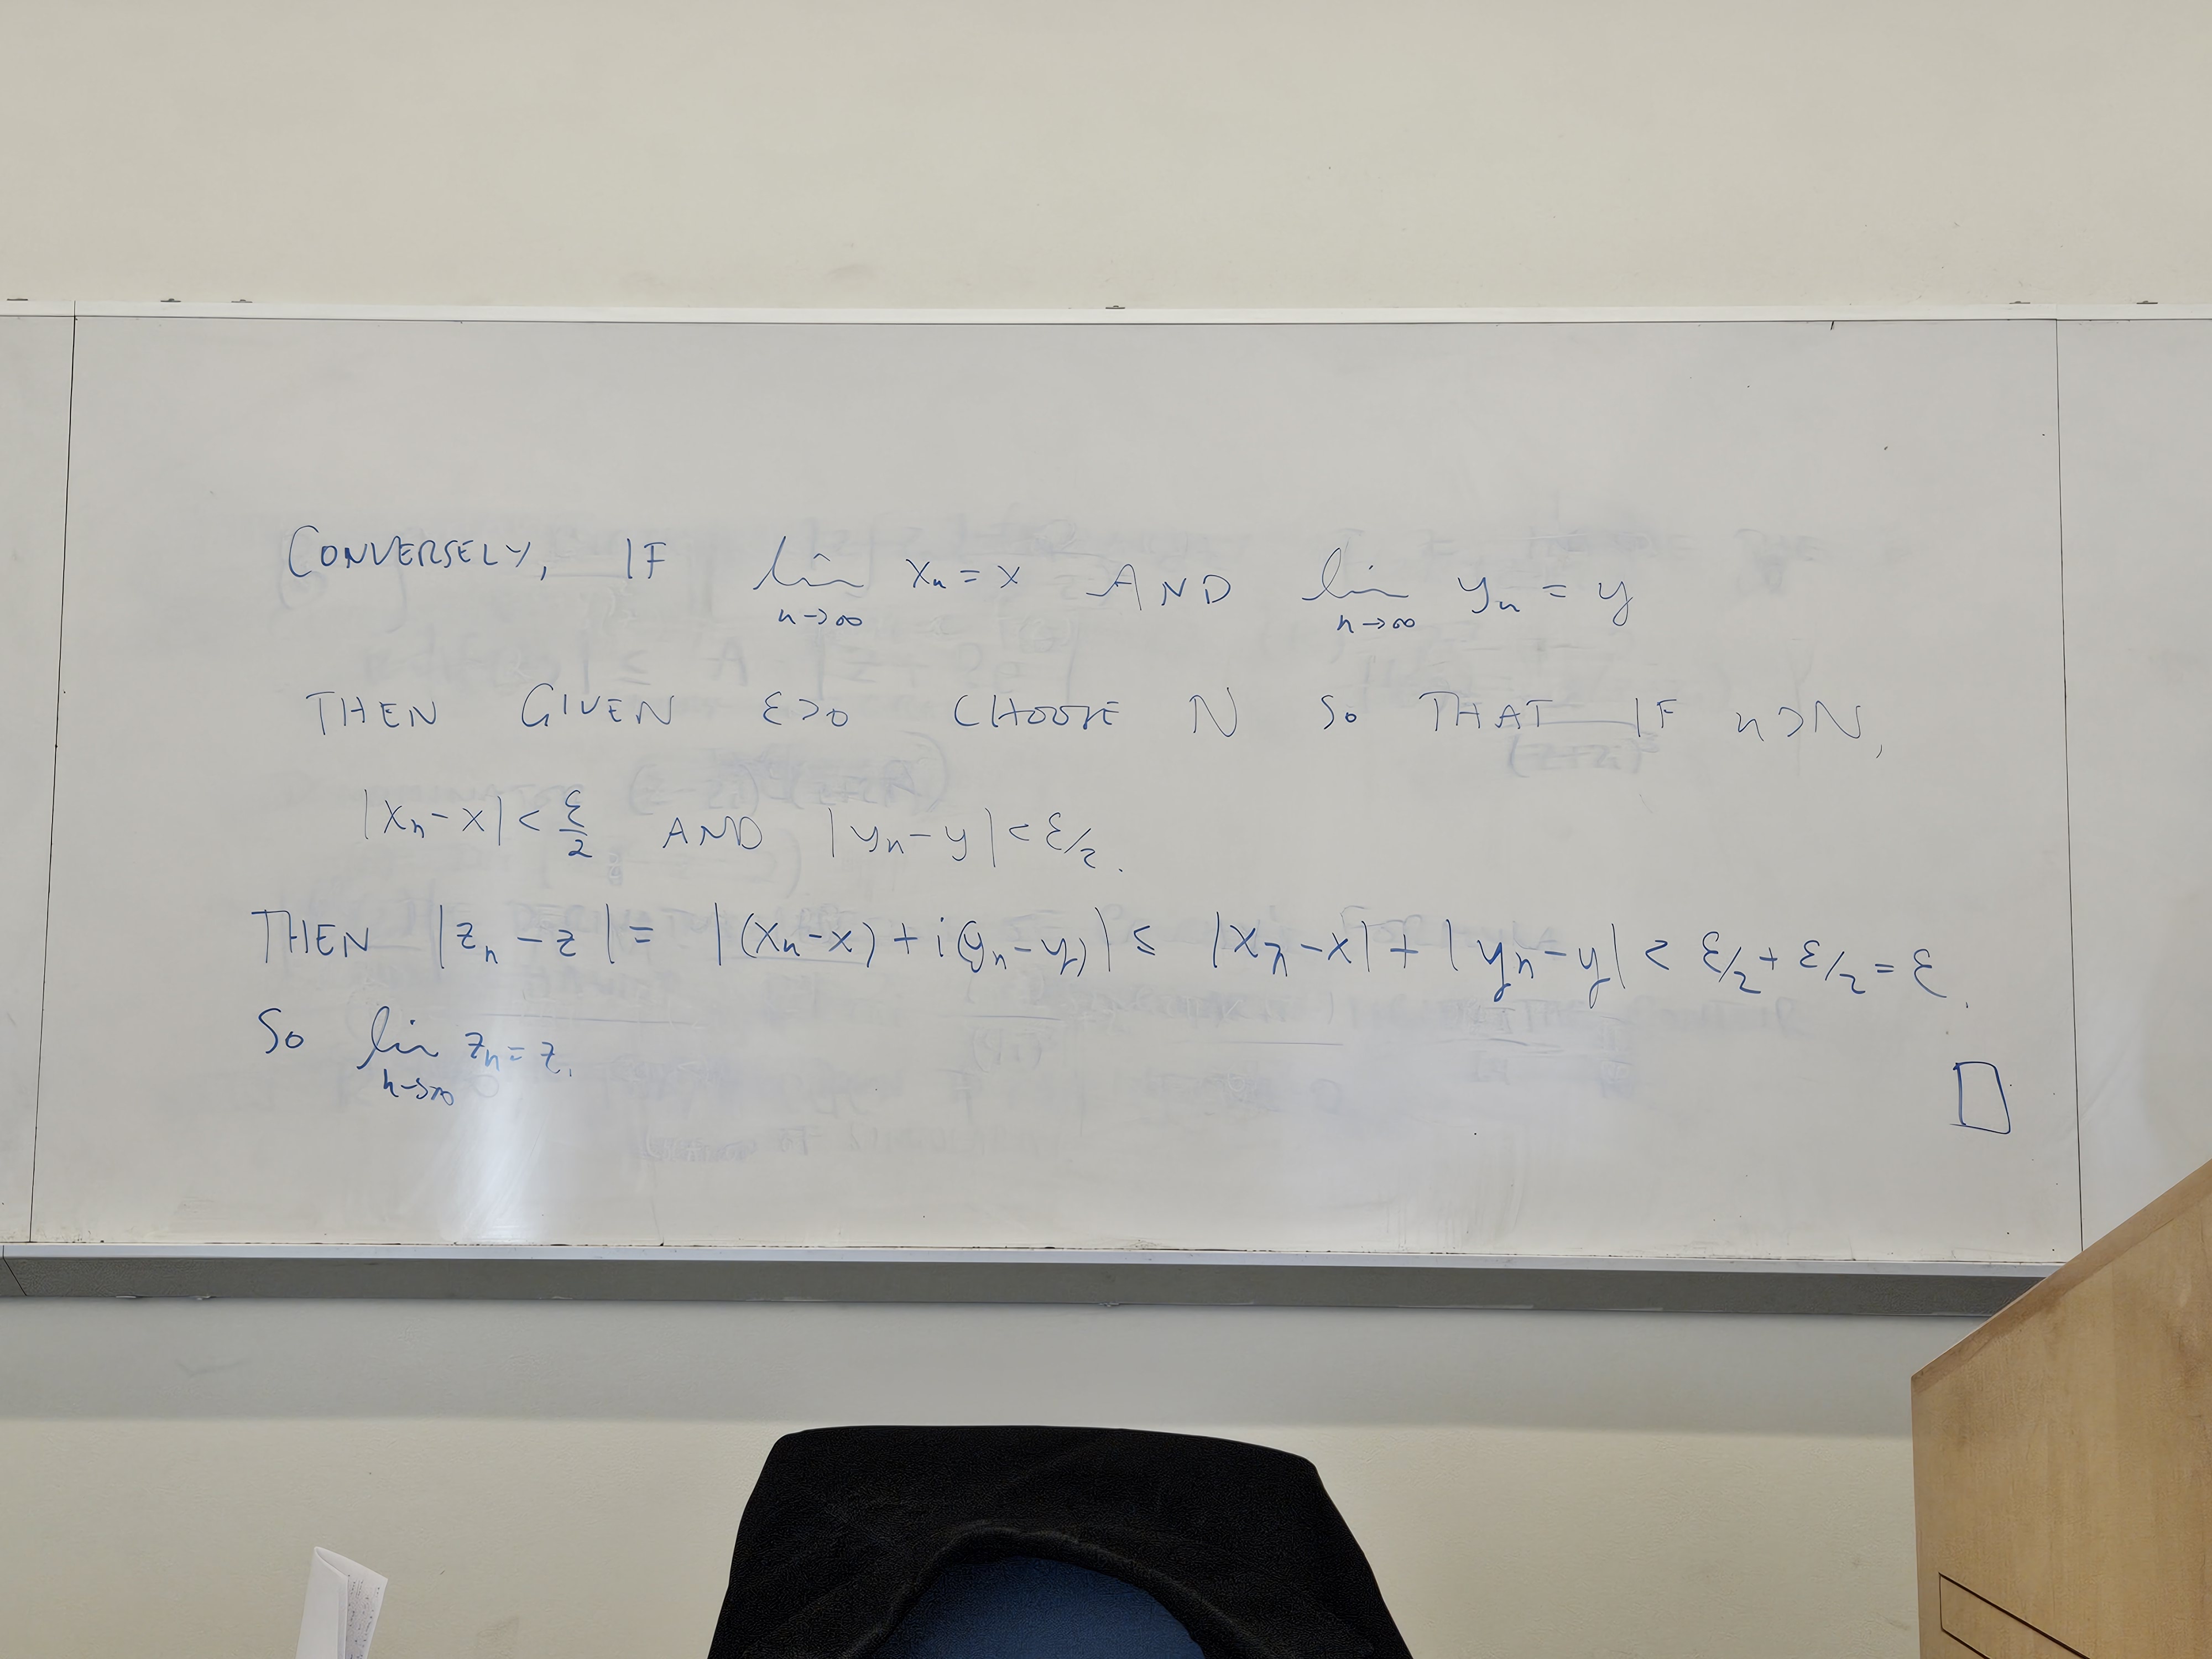 CONVERSELY, IF lim n→∞ xn = x AND lim n→∞ yn = y
THEN GIVEN ε>0 CHOOSE N SO THAT IF n>N,
|xn - x| < ε/2 AND |yn - y| < ε/2.
THEN |zn - z| = |(xn - x) + i(yn - y)| ≤ |xn - x| + |yn - y| < ε/2 + ε/2 = ε.
SO lim n→∞ zn = z.
□